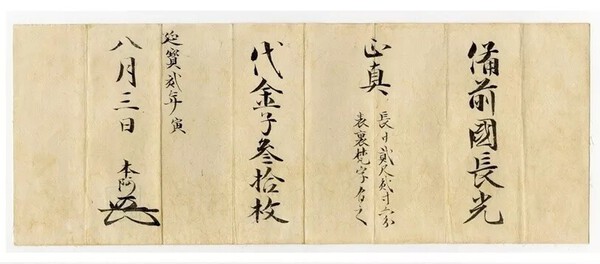 備前國長光
正真
長サ貳尺貳寸二分
表裏梵字有之
代金子参拾枚
延寳貳年寅
八月三日
本阿